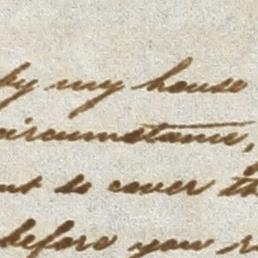 by my house
circumstance,
to cover
before you